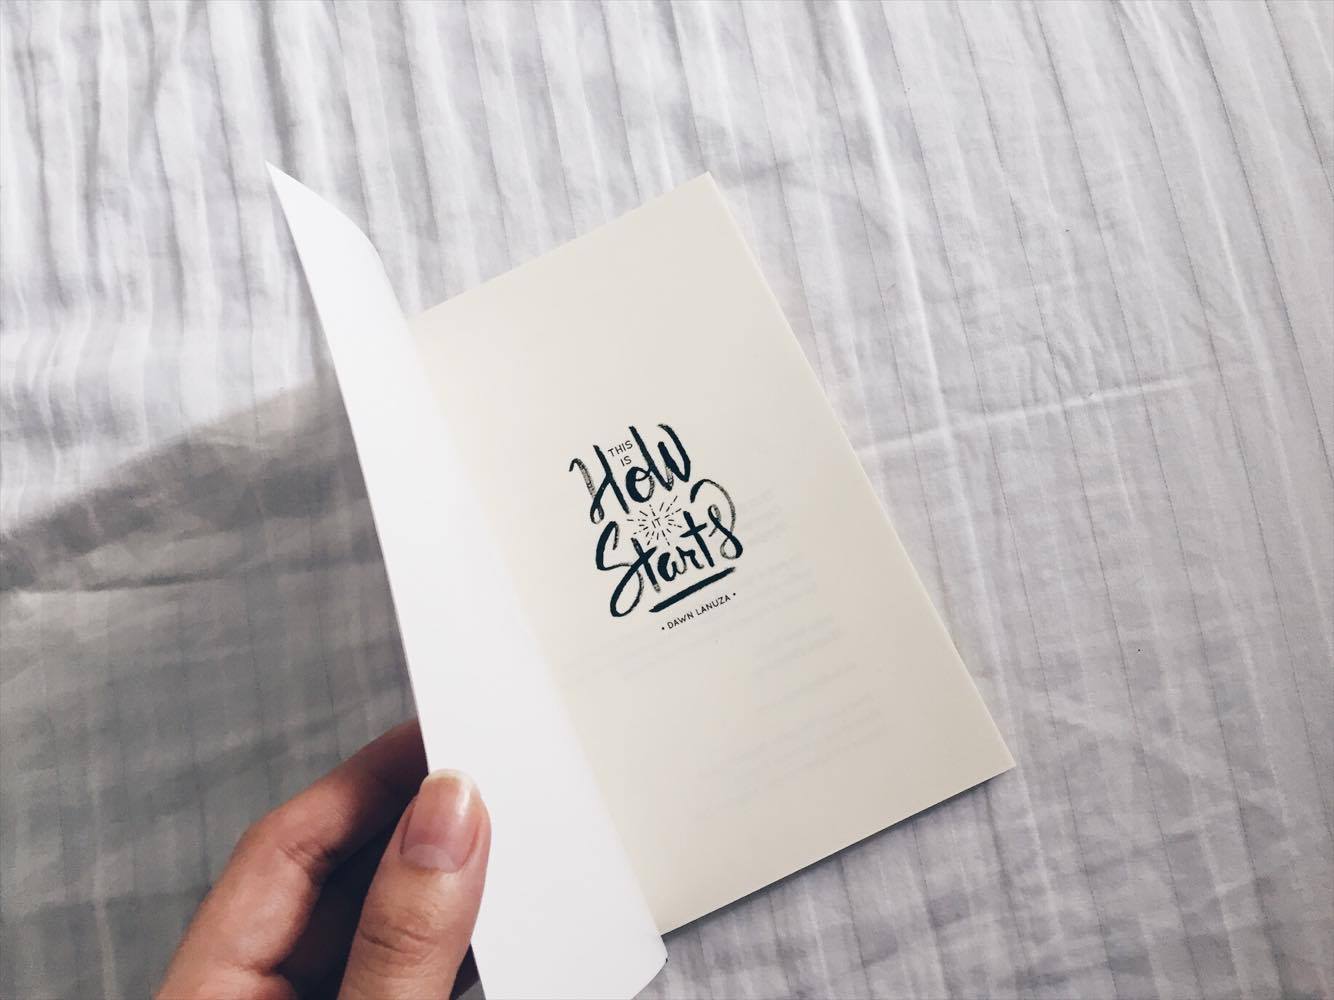 THIS
IS
HoW
IT
Starts
• DAWN LANUZA •